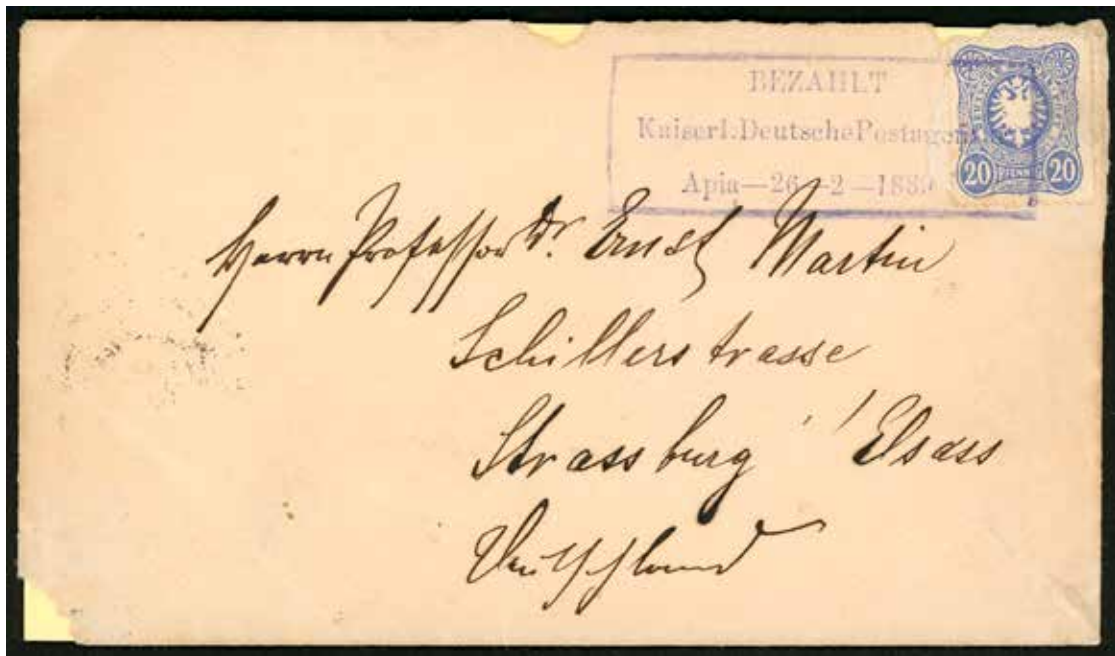 BEZAHLT
Kaiserl. Deutsche Postagentur
Apia—26—2—1889
20 PFENNIG 20
Herrn Professor Dr. Ernst Martin
Schillerstrasse
Strassburg i/ Elsass
Deutschland